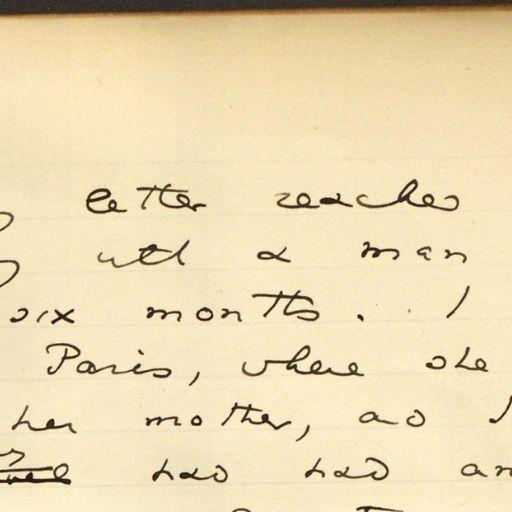 letter reaches
with a man
six months. I
Paris, where she
her mother, as I
has had an